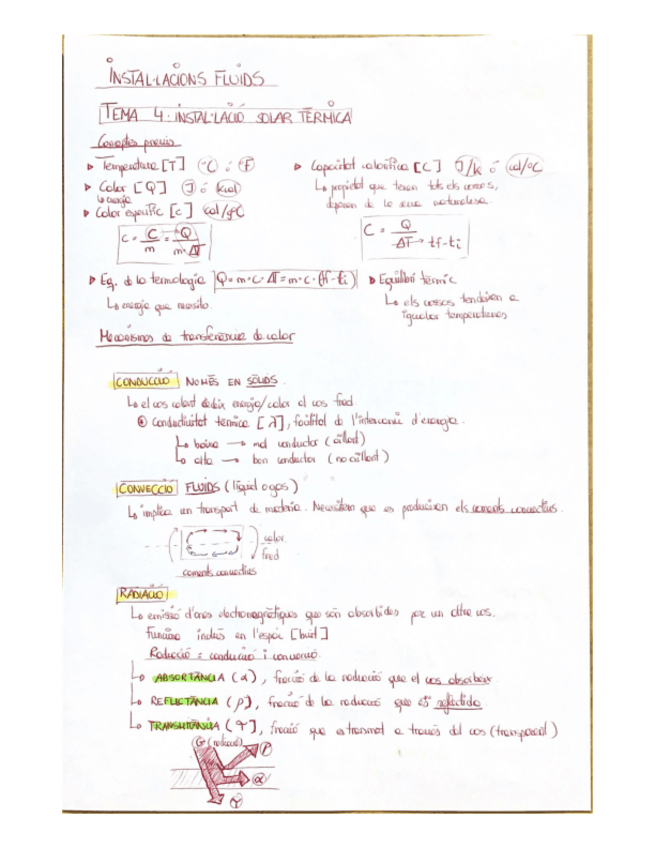 INSTAL·LACIONS FLUIDS
TEMA 4: INSTAL·LACIÓ SOLAR TÈRMICA
Conceptes previs
▹ Temperatura [T] °C ó °F
▹ Calor [Q] J ó kcal
↳ energia
▹ Calor específic [c] cal/g°C
c = C/m = Q/m·ΔT
▹ Capacitat calorífica [C] J/k ó cal/°C
↳ propietat que tenen tots els cossos,
depenen de la seva naturalesa.
C = Q/ΔT → tf-ti
▹ Eq. de la termologia Q = m·c·ΔT = m·c·(tf-ti)
↳ energia que necesito.
▹ Equilibri tèrmic
↳ els cossos tendeixen a
igualar temperatures
Mecanismes de transferència de calor
CONDUCCIÓ NOMÉS EN SÒLIDS.
↳ el cos calent cedeix energia/calor al cos fred.
conductivitat tèrmica [λ], facilitat de l'intercanvi d'energia.
↳ baixa → mal conductor (aïllant)
↳ alta → bon conductor (no aïllant)
CONVECCIÓ FLUIDS (líquid o gas)
↳ implica un transport de matèria. Necessitem que es produeixen els corrents convectius.
calor
fred
corrents convectius
RADIACIÓ
↳ emissió d'ones electromagnètiques que són absorbides per un altre cos.
Funciona inclús en l'espai [buit]
Radiació = conducció i convecció.
↳ ABSORTÀNCIA (α), fracció de la radiació que el cos absorbeix.
↳ REFLECTÀNCIA (ρ), fracció de la radiació que és reflectida.
↳ TRANSMITÀNCIA (τ), fracció que es transmet a través del cos (transparent)
G (radiació)
ρ
α
τ